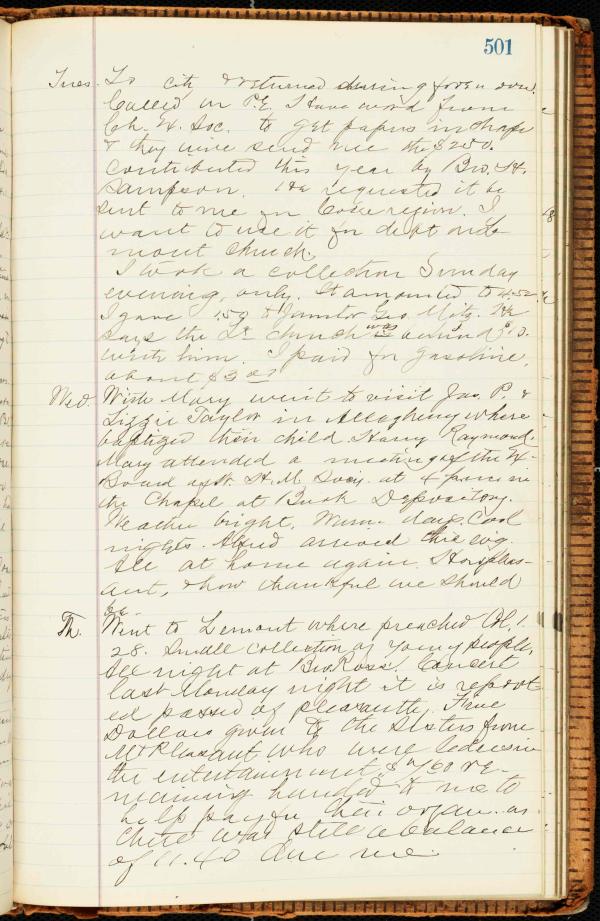 501
Tues. To city & returned during forenoon.
Called on P.E. I have word from
Ch. Ex. Soc. to get papers in shape
& they will send me the $250.
contributed this year by Bro. H.
Sampson. He requested it be
sent to me for Coke region. I
want to use it for debt on Le-
mont church.
I took a collection Sunday
evening, only. It amounted to 4.52
I gave 1.50 to Janitor Geo. He
says the Lt church was behind $
with him. I paid for gasoline,
about $3
Wed. With Mary went to visit Jas. P. &
Lizzie Taylor in Allegheny where
baptized their child Harry Raymond.
Mary attended a meeting of the Ex-
Board of W. H. M. Socy. at 4 p.m. in
the Chapel at Book Depository.
Weather bright. Warm days. Cool
nights. Alfred arrived this evg.
All at home again. How pleas-
ant, & how thankful we should
be.
Th. Went to Lemont where preached Col. 1.
28. Small collection of young people.
All night at Bro. Ross'. Concert
last Monday night it is report-
ed passed of pleasantly. Five
Dollars given to the sisters from
Mt Pleasant who were leaders in
the entertainment, & 7.60 re-
maining handed to me to
help pay for their organ. as
there was still a balance
of 11.40 due me.